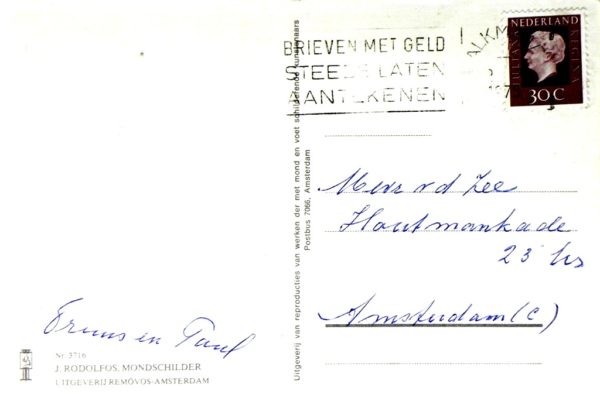 BRIEVEN MET GELD
STEEDS LATEN
AANTEKENEN
ALKM
197
NEDERLAND
JULIANA
REGINA
30 C
Uitgeverij van reproducties van werken der met mond en voet schilderende kunstenaars
Postbus 7066, Amsterdam
Mevr v d Zee
Houtmankade
23 hs
Amsterdam (C)
Truus en Paul
Nr 3716
J. RODOLFOS, MONDSCHILDER
UITGEVERIJ REMOVOS-AMSTERDAM